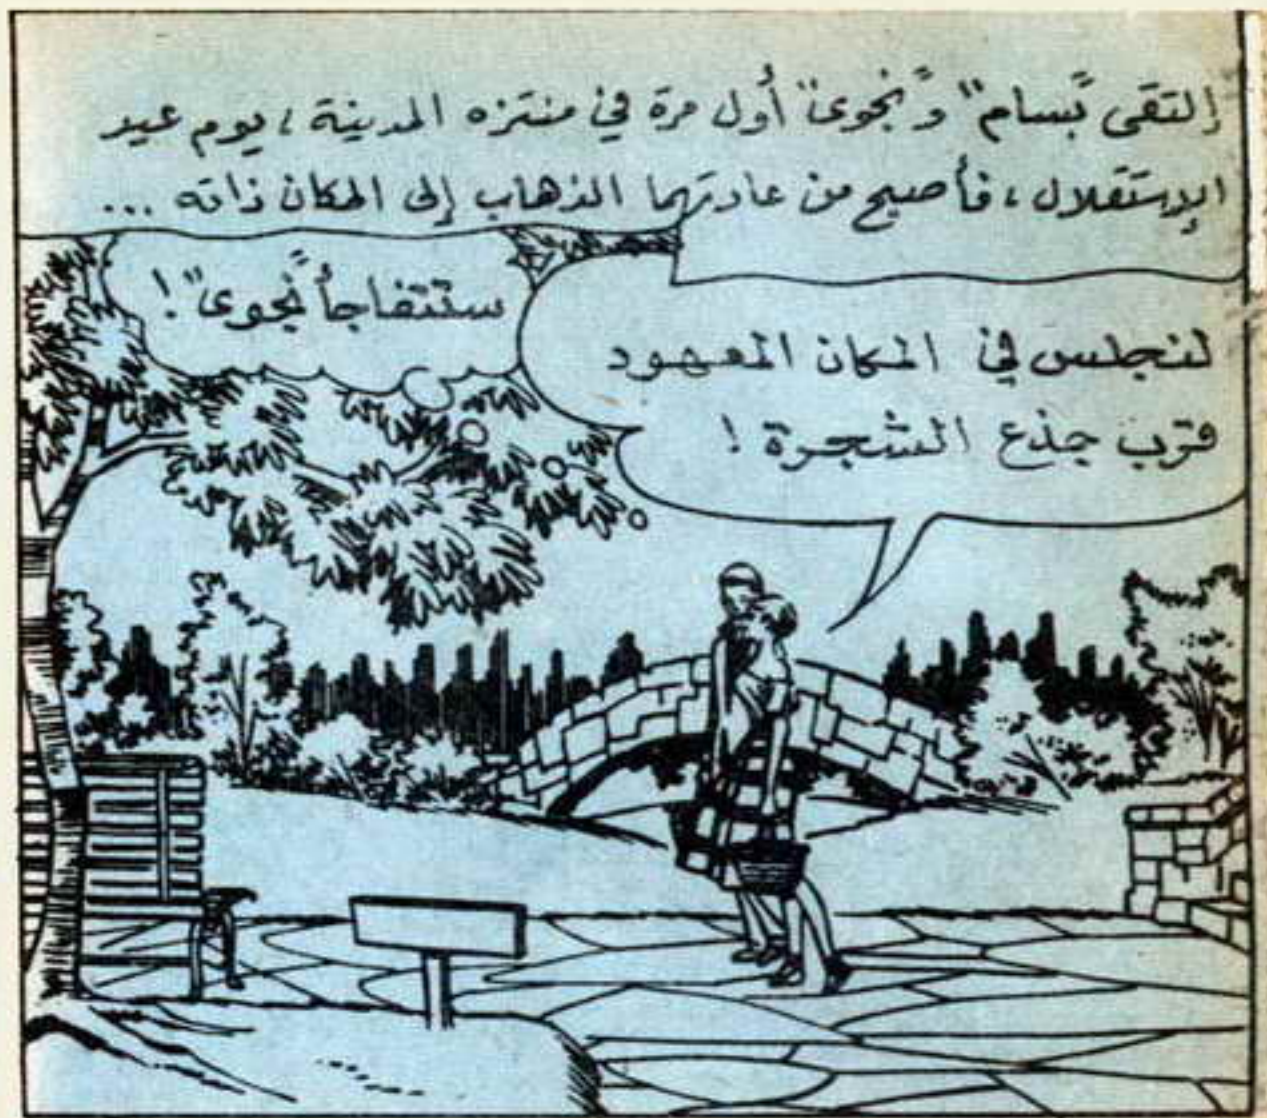 إلتقى "بسام" و"نجوى" أول مرة في منتزه المدينة، يوم عيد
الإستقلال، فأصبح من عادتهما الذهاب إلى المكان ذاته ...
لنجلس في المكان المعهود
قرب جذع الشجرة !
ستتفاجأ "نجوى" !